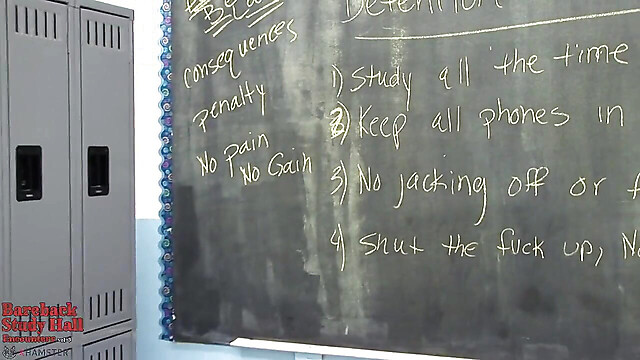 Detention
consequences
penalty
No pain
No Gain
1) Study all the time
2) Keep all phones in
3) No jacking off or f
4) Shut the fuck up, No
Bareback
Study Hall
Encounters
XHAMSTER